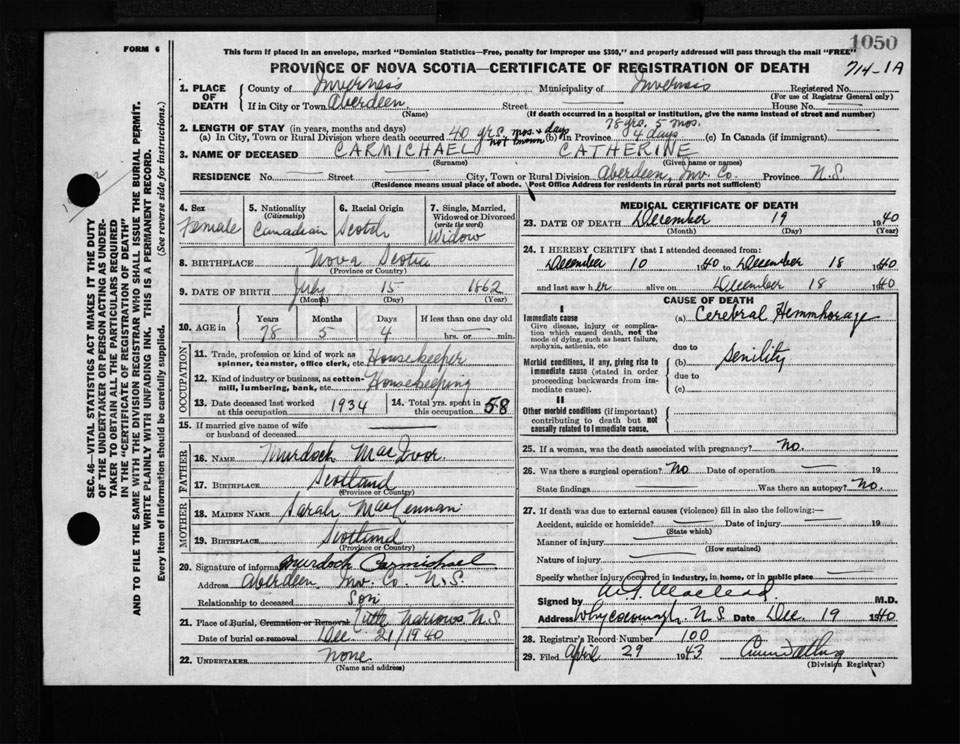 1050
FORM 6
This form if placed in an envelope, marked "Dominion Statistics—Free, penalty for improper use $300," and properly addressed will pass through the mail "FREE"
PROVINCE OF NOVA SCOTIA—CERTIFICATE OF REGISTRATION OF DEATH
714-1A
1. PLACE OF DEATH
County of Inverness Municipality of Inverness Registered No.
(For use of Registrar General only)
If in City or Town Aberdeen Street House No.
(Name) (If death occurred in a hospital or institution, give the name instead of street and number)
2. LENGTH OF STAY (in years, months and days)
(a) In City, Town or Rural Division where death occurred 40 yrs. mos. & days not known (b) In Province 78 yrs. 5 mos. 4 days (c) In Canada (if immigrant)
3. NAME OF DECEASED CARMICHAEL CATHERINE
(Surname) (Given name or names)
RESIDENCE No. Street City, Town or Rural Division Aberdeen, Inv. Co. Province N.S.
(Residence means usual place of abode. Post Office Address for residents in rural parts not sufficient)
4. Sex
Female
5. Nationality
(Citizenship)
Canadian
6. Racial Origin
Scotch
7. Single, Married, Widowed or Divorced
(write the word)
Widow
8. BIRTHPLACE Nova Scotia
(Province or Country)
9. DATE OF BIRTH July 15 1862
(Month) (Day) (Year)
10. AGE in
Years Months Days If less than one day old
78 5 4 hrs. or min.
OCCUPATION
11. Trade, profession or kind of work as spinner, teamster, office clerk, etc. Housekeeper
12. Kind of industry or business, as cotton-mill, lumbering, bank, etc. Housekeeping
13. Date deceased last worked at this occupation 1934
14. Total yrs. spent in this occupation 58
15. If married give name of wife or husband of deceased
FATHER
16. NAME Murdoch MacIvor
17. BIRTHPLACE Scotland
(Province or Country)
MOTHER
18. MAIDEN NAME Sarah MacLennan
19. BIRTHPLACE Scotland
(Province or Country)
20. Signature of informant Murdock Carmichael
Address Aberdeen, Inv. Co. N.S.
Relationship to deceased Son
21. Place of Burial, Cremation or Removal Little Narrows N.S.
Date of burial or removal Dec. 21/1940
22. UNDERTAKER None
(Name and address)
MEDICAL CERTIFICATE OF DEATH
23. DATE OF DEATH December 19 1940
(Month) (Day) (Year)
24. I HEREBY CERTIFY that I attended deceased from:
December 10 1940 to December 18 1940
and last saw her alive on December 18 1940
CAUSE OF DEATH
I
Immediate cause
Give disease, injury or complication which caused death, not the mode of dying, such as heart failure, asphyxia, asthenia, etc
(a) Cerebral Hemmhorage
due to
Morbid conditions, if any, giving rise to immediate cause (stated in order proceeding backwards from immediate cause).
(b) Senility
due to
(c)
II
Other morbid conditions (if important) contributing to death but not causally related to immediate cause.
25. If a woman, was the death associated with pregnancy? No.
26. Was there a surgical operation? No Date of operation 19
State findings Was there an autopsy? No.
27. If death was due to external causes (violence) fill in also the following:—
Accident, suicide or homicide? Date of injury 19
(State which)
Manner of injury
(How sustained)
Nature of injury
Specify whether injury occurred in industry, in home, or in public place
Signed by Macleod M.D.
Address Whycocomagh, N.S. Date Dec. 19 1940
28. Registrar's Record Number 100
29. Filed April 29 1943
(Division Registrar)
SEC. 46—VITAL STATISTICS ACT MAKES IT THE DUTY
OF THE UNDERTAKER OR PERSON ACTING AS UNDER-
TAKER TO OBTAIN ALL THE PARTICULARS REQUIRED
IN THE "CERTIFICATE OF REGISTRATION OF DEATH"
AND TO FILE THE SAME WITH THE DIVISION REGISTRAR WHO SHALL ISSUE THE BURIAL PERMIT.
WRITE PLAINLY WITH UNFADING INK. THIS IS A PERMANENT RECORD.
Every item of information should be carefully supplied. (See reverse side for instructions.)